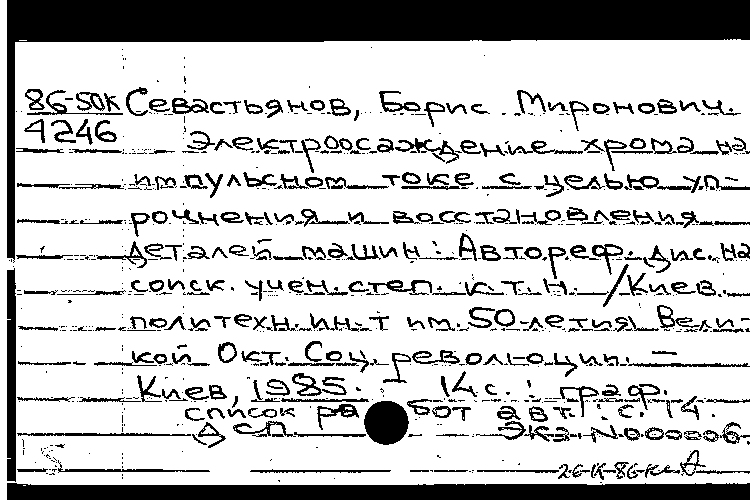 86-50К Севастьянов, Борис Миронович.
4246
Электроосаждение хрома на
импульсном токе с целью уп-
рочнения и восстановления
деталей машин: Автореф. дис. на
соиск. учен. степ. к.т.н. /Киев.
политехн. ин-т им. 50-летия Вели-
кой Окт. Соц. революции. —
Киев, 1985. - 14 с. : граф.
список работ авт.: с. 14.
Д сп. Экз. N000006.